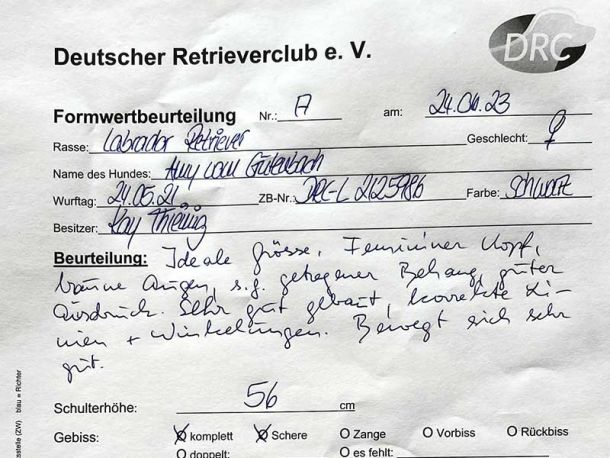 Deutscher Retrieverclub e. V.
DRC
Formwertbeurteilung Nr.: A am: 24.06.23
Rasse: Labrador Retriever Geschlecht: ♀
Name des Hundes: Amy vom Gutenbach
Wurftag: 24.05.21 ZB-Nr.: DRC-L 2125986 Farbe: schwarz
Besitzer: Kay Thieмig
Beurteilung: Ideale Grösse, Femininer Kopf,
braune Augen, s.g. getragener Behang, guter
Ausdruck. Sehr gut gebaut, korrekte Li-
nien + Winkelungen. Bewegt sich sehr
gut.
Schulterhöhe: 56 cm
Gebiss: komplett Schere O Zange O Vorbiss O Rückbiss
O doppelt: O es fehlt:
stelle (ZW) blau = Richter